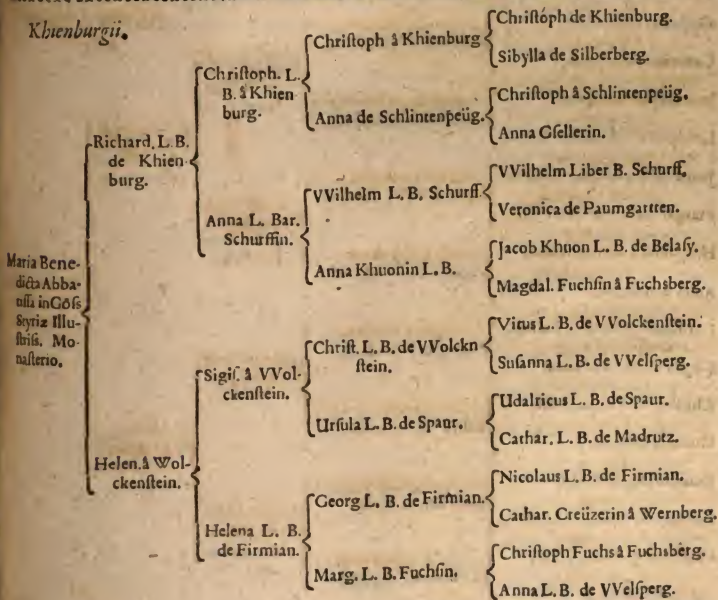 Khienburgii.
Maria Bene-
dicta Abba-
tissa in Göss
Styriæ Illu-
striss. Mo-
nasterio.
Richard. L. B.
de Khien-
burg.
Helen. â Wol-
ckenstein.
Christoph. L.
B. â Khien
burg.
Anna L. Bar.
Schurffin.
Sigis. â VVol-
ckenstein.
Helena L. B.
de Firmian.
Christoph â Khienburg
Anna de Schlintenpeüg.
VVilhelm L. B. Schurff.
Anna Khuonin L. B.
Christ. L. B. de VVolckn
stein.
Ursula L. B. de Spaur.
Georg L. B. de Firmian.
Marg. L. B. Fuchsin.
Christóph de Khienburg.
Sibylla de Silberberg.
Christoph â Schlintenpeüg.
Anna Gsellerin.
VVilhelm Liber B. Schurff.
Veronica de Paumgartten.
Jacob Khuon L. B. de Belasy.
Magdal. Fuchsin â Fuchsberg.
Vitus L. B. de VVolckenstein.
Susanna L. B. de VVelsperg.
Udalricus L. B. de Spaur.
Cathar. L. B. de Madrutz.
Nicolaus L. B. de Firmian.
Cathar. Creüzerin â Wernberg.
Christoph Fuchs â Fuchsberg.
Anna L. B. de VVelsperg.